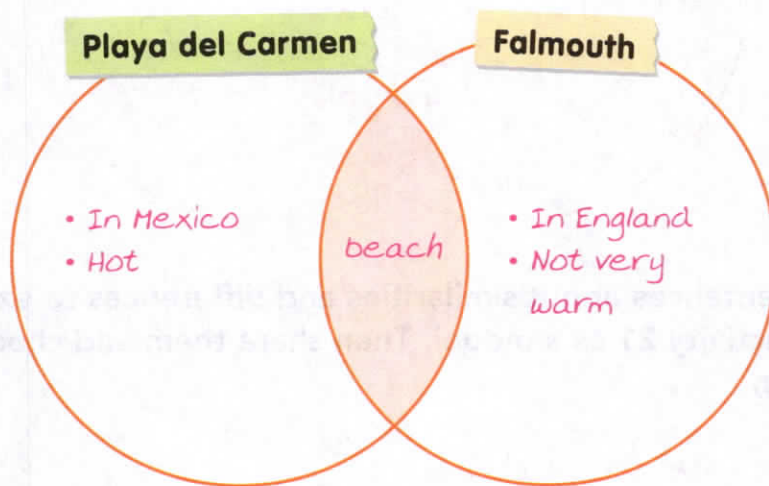 Playa del Carmen
Falmouth
• In Mexico
• Hot
beach
• In England
• Not very
warm